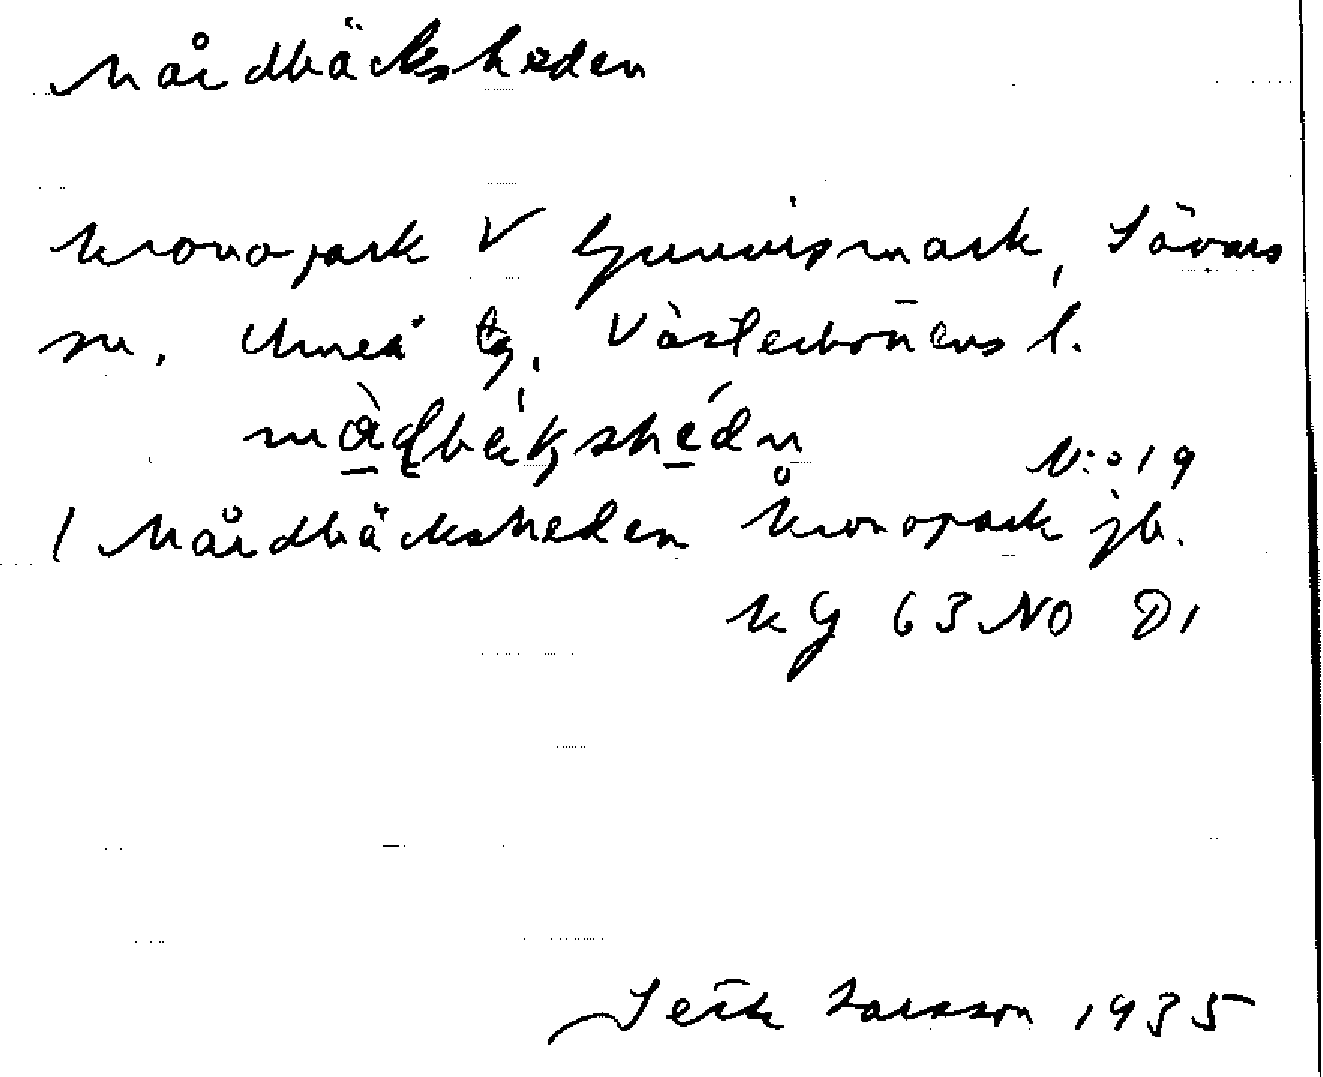 Mårdbäcksheden
kronopark V Gunnismark, Sävars
sn. Umeå tg, Västerbottens l.
mɑ̀ḍbäkshédn
N:o 19
/ Mårdbäcksheden kronopark jb.
kG 63 NO D1
Jerk Larsson 1935